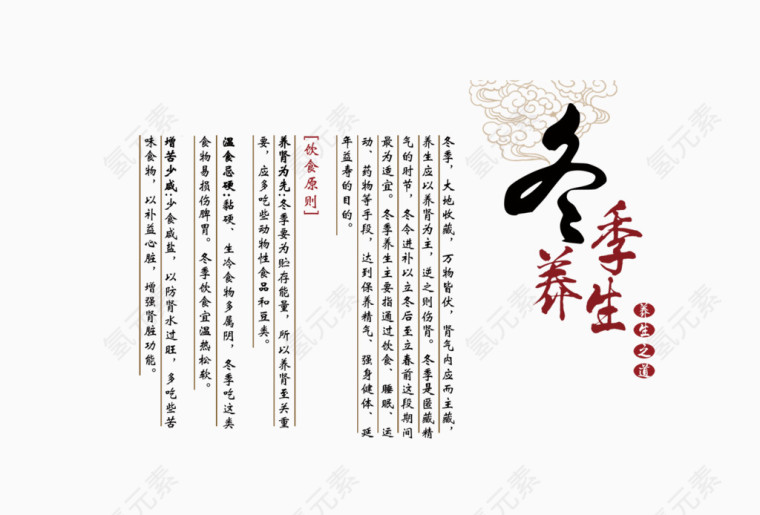 冬季养生
养生之道
冬季，大地收藏，万物皆伏，肾气内应而主藏，
养生应以养肾为主，逆之则伤肾。冬季是匿藏精
气的时节，冬令进补以立冬后至立春前这段期间
最为适宜。冬季养生主要指通过饮食、睡眠、运
动、药物等手段，达到保养精气、强身健体、延
年益寿的目的。
[饮食原则]
养肾为先:冬季要为贮存能量，所以养肾至关重
要，应多吃些动物性食品和豆类。
温食忌硬:黏硬、生冷食物多属阴，冬季吃这类
食物易损伤脾胃。冬季饮食宜温热松软。
增苦少咸:少食咸盐，以防肾水过旺，多吃些苦
味食物，以补益心脏，增强肾脏功能。
氢元素
氢元素
氢元素
氢元素
氢元素
氢元素
氢元素
氢元素
氢元素